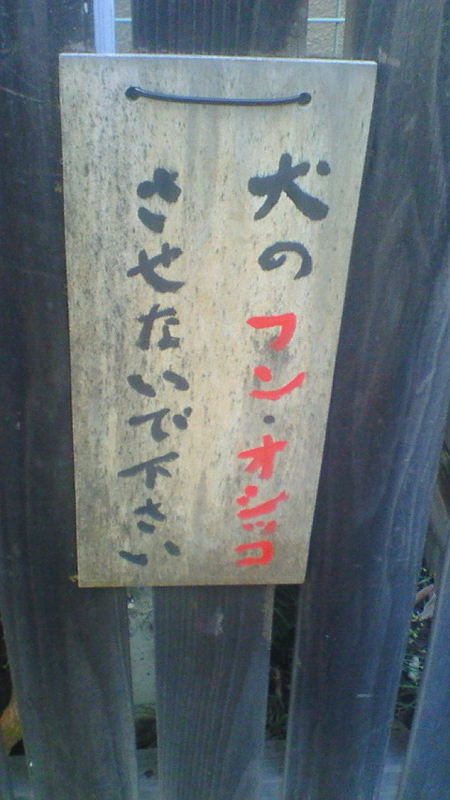 犬のフン・オシッコ
させないで下さい